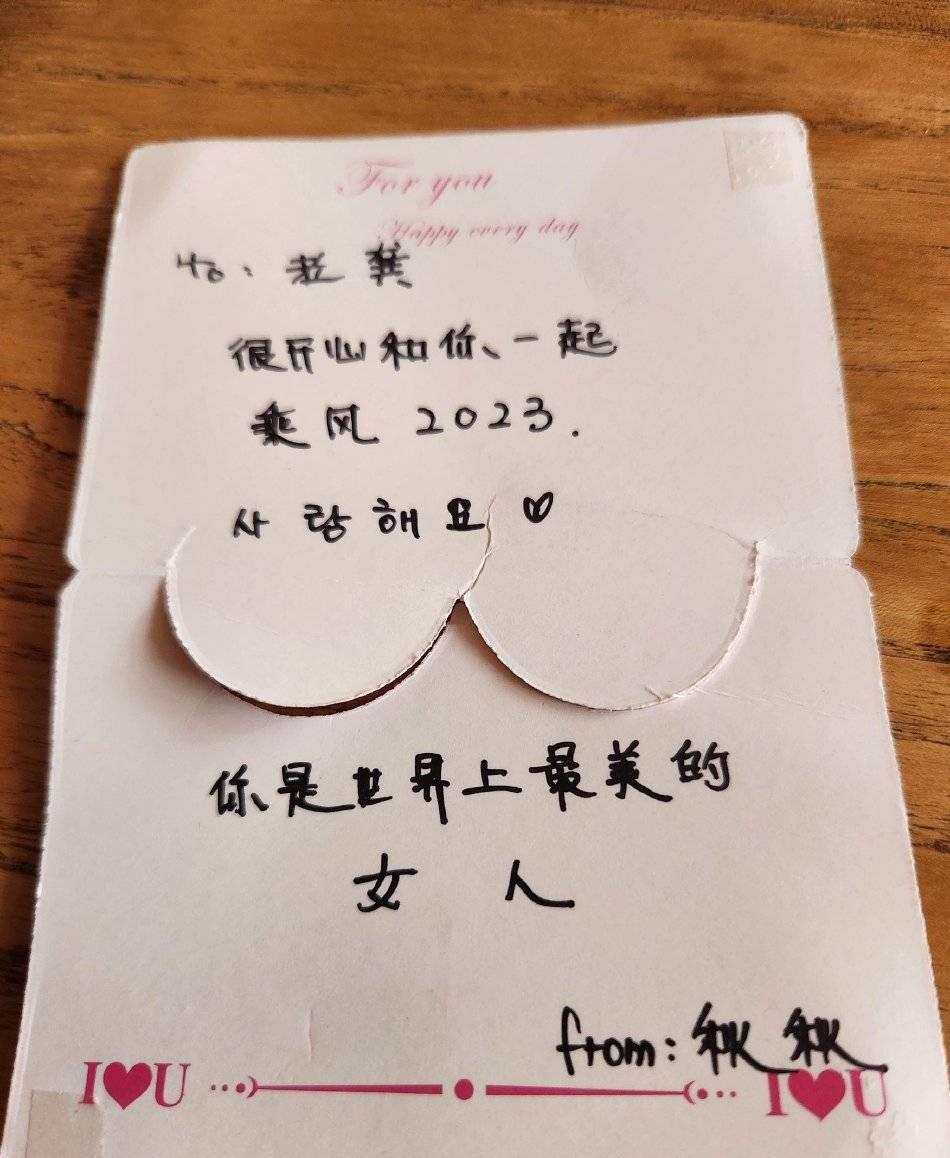 For you
Happy every day
to: 老龚
很开心和你、一起
乘风 2023.
사랑해요 ♡
你是世界上最美的
女人
from: 秋秋
I♥U I♥U